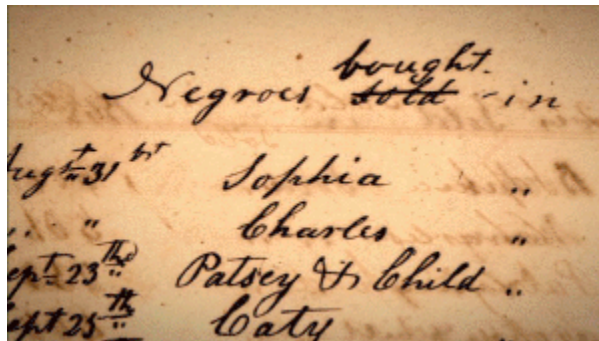 bought.
Negroes sold - in
Augt 31st Sophia "
" " Charles "
Sept 23th Patsey & Child "
Sept 25th Caty